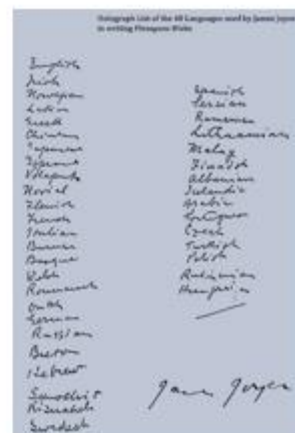 Holograph List of the 40 Languages used by James Joyce
in writing Finnegans Wake
English
Irish
Norwegian
Latin
Greek
Chinese
Japanese
Esperanto
Volapuk
Novial
Flemish
French
Italian
Burmese
Basque
Welsh
Roumansch
Dutch
German
Russian
Breton
Hebrew
Sanskrit
Swedish
Spanish
Persian
Rumanian
Lithuanian
Malay
Finnish
Albanian
Icelandic
Arabic
Portuguese
Czech
Turkish
Polish
Ruthenian
Hungarian
James Joyce